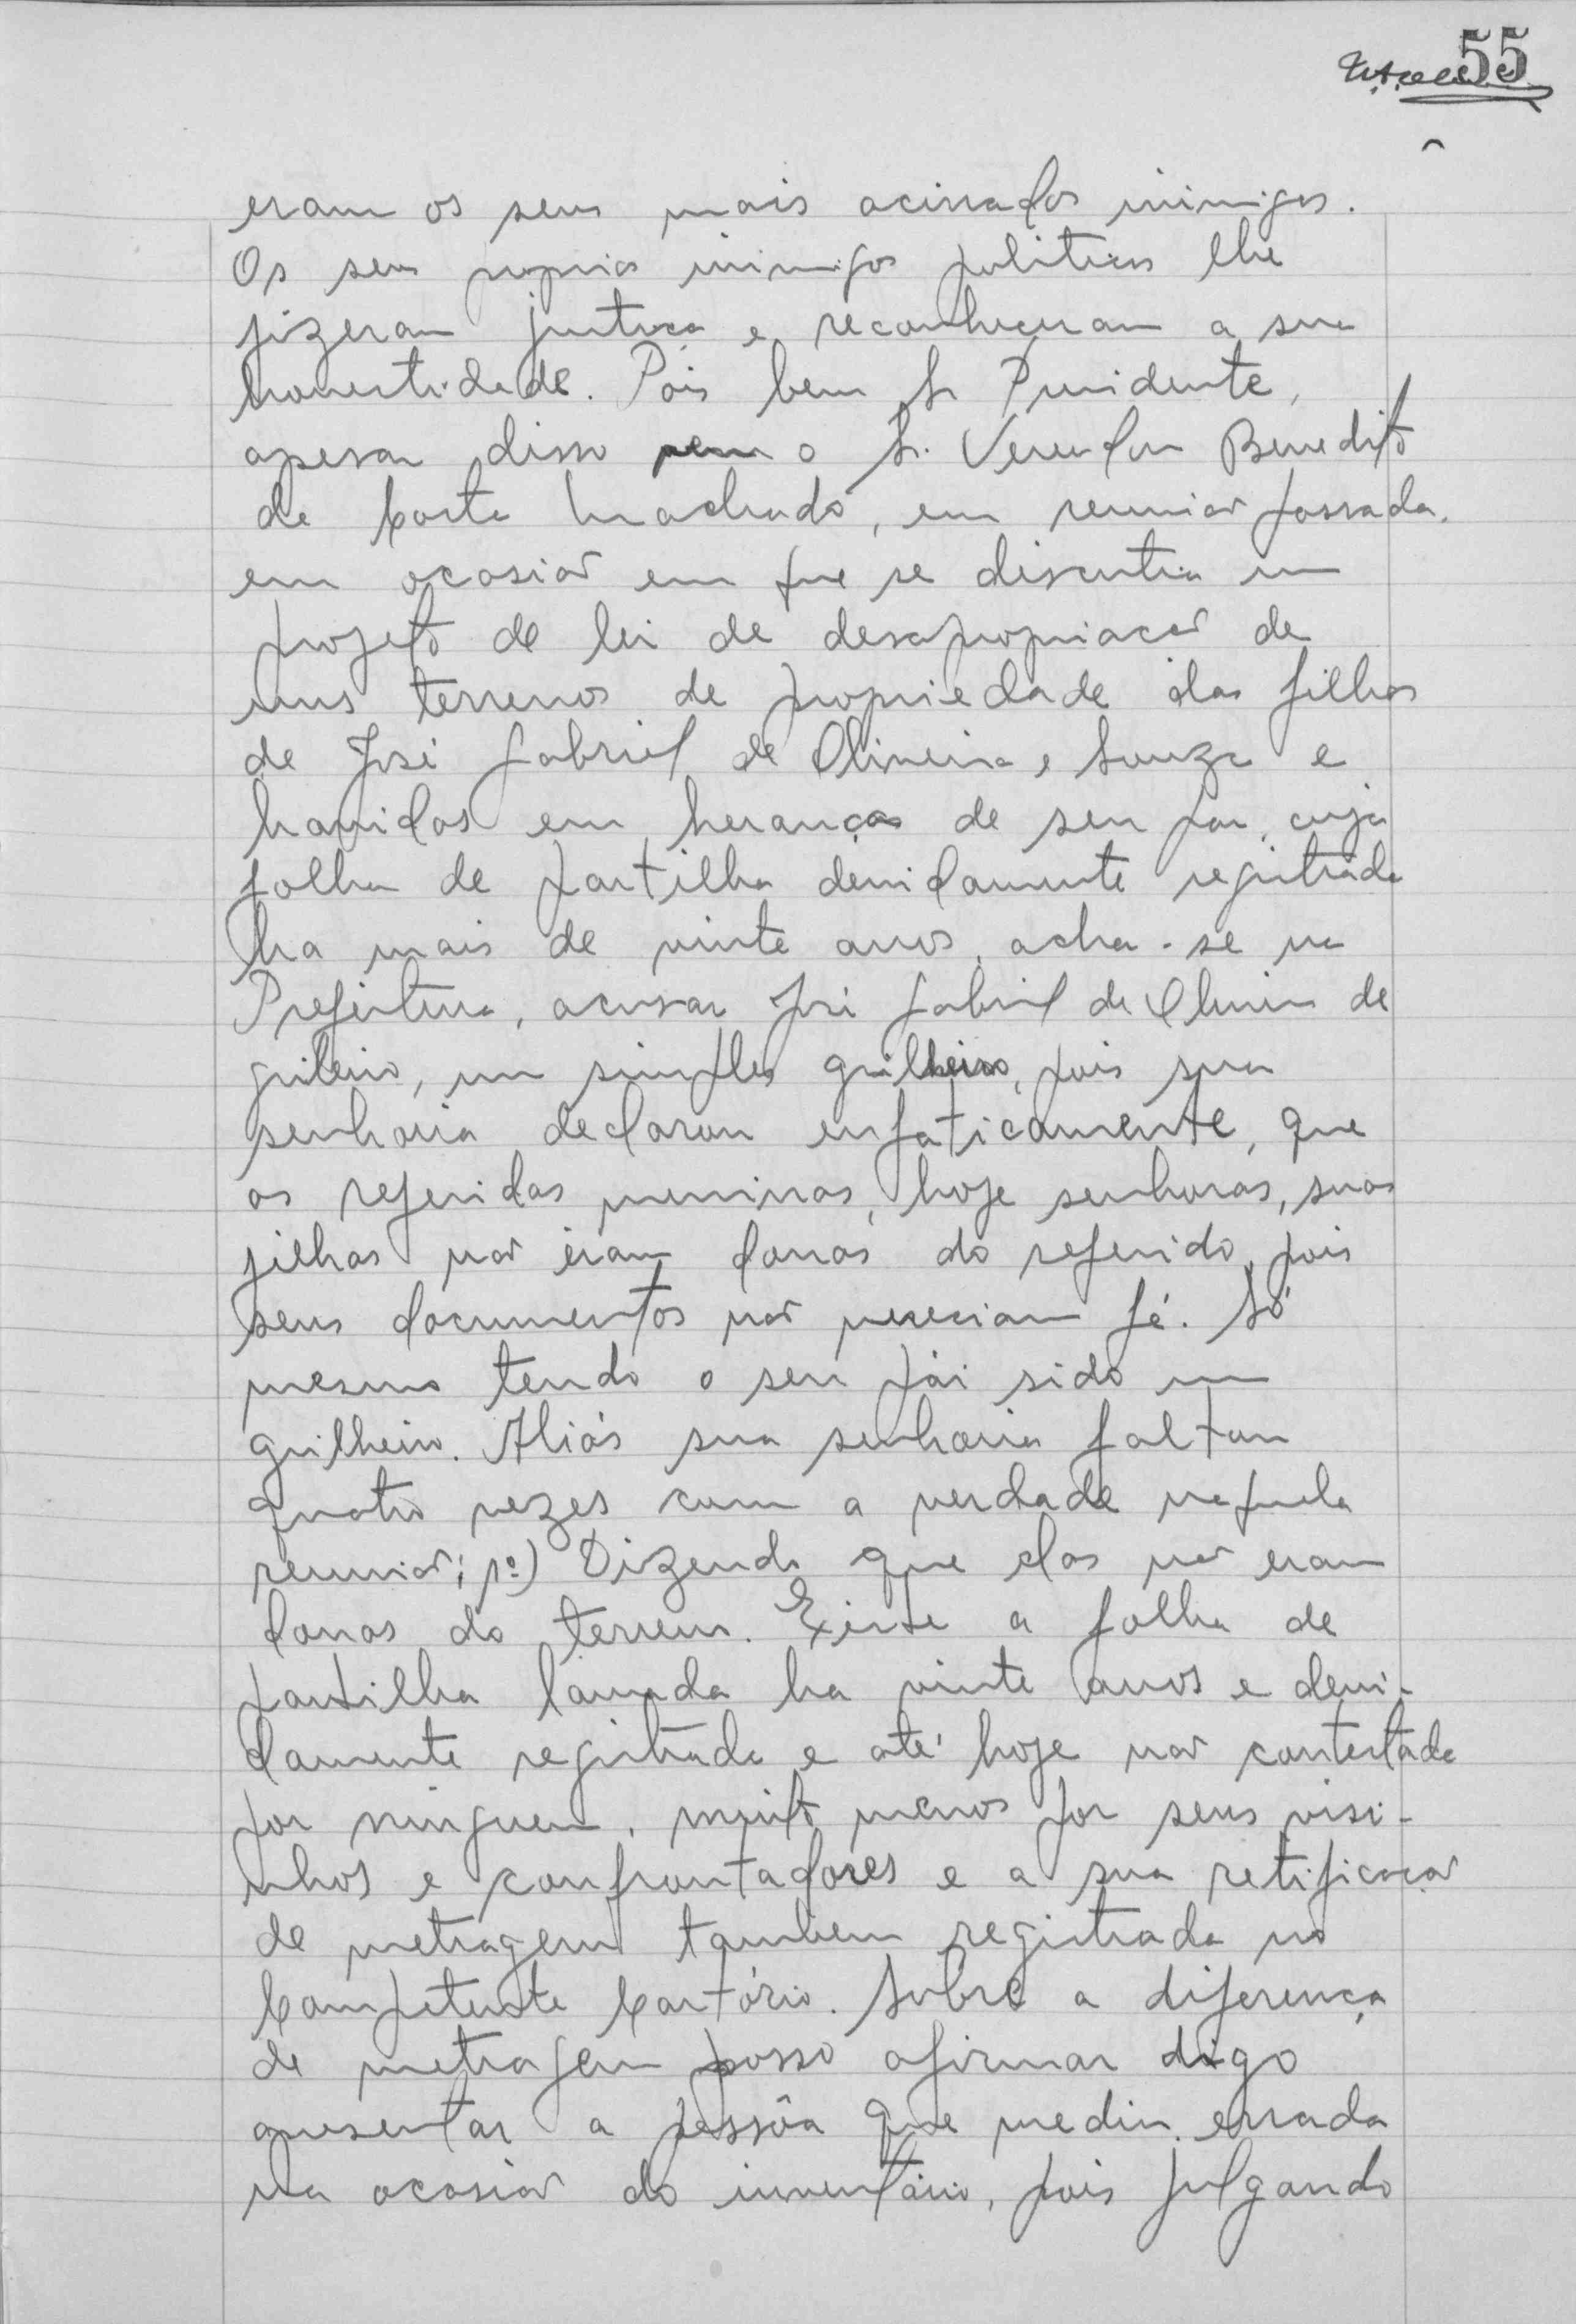 55
eram os seus mais acirrados inimigos.
Os seus proprios inimigos politicos lhe
fizeram justiça e reconheceram a sua
honestidade. Pois bem Sr Presidente,
apesar disso vem o Sr. Vereador Benedito
de Costa Machado, em reunião passada,
em ocasião em que se discutia um
projeto de lei de desapropriação de
uns terrenos de propriedade das filhas
de José Gabriel de Oliveira e Souza e
havidos em herança de seu pai, cuja
folha de partilha devidamente registrada
ha mais de vinte anos, acha-se na
Prefeitura, acusar José Gabriel de Oliveira de
grileiro, um simples grilheiro, pois sua
senhoria declarou enfaticamente, que
as referidas meninas, hoje senhoras, suas
filhas não éram donas do referido, pois
seus documentos não mereciam fé. Só
mesmo tendo o seu pai sido um
grilheiro. Aliás sua senhoria faltou
quatro vezes com a verdade naquela
reunião; 1º) Dizendo que elas não eram
donas do terreno. Existe a folha de
partilha lavrada ha vinte anos e devi-
damente registrada e até hoje não contestada
por ninguem, muito menos por seus visi-
nhos e confrontadores e a sua retificação
de metragem tambem registrada no
Competente Cartório. Sobre a diferença
de metragem posso afirmar digo
apresentar a pessôa que mediu errada
na ocasião do inventário, pois julgando